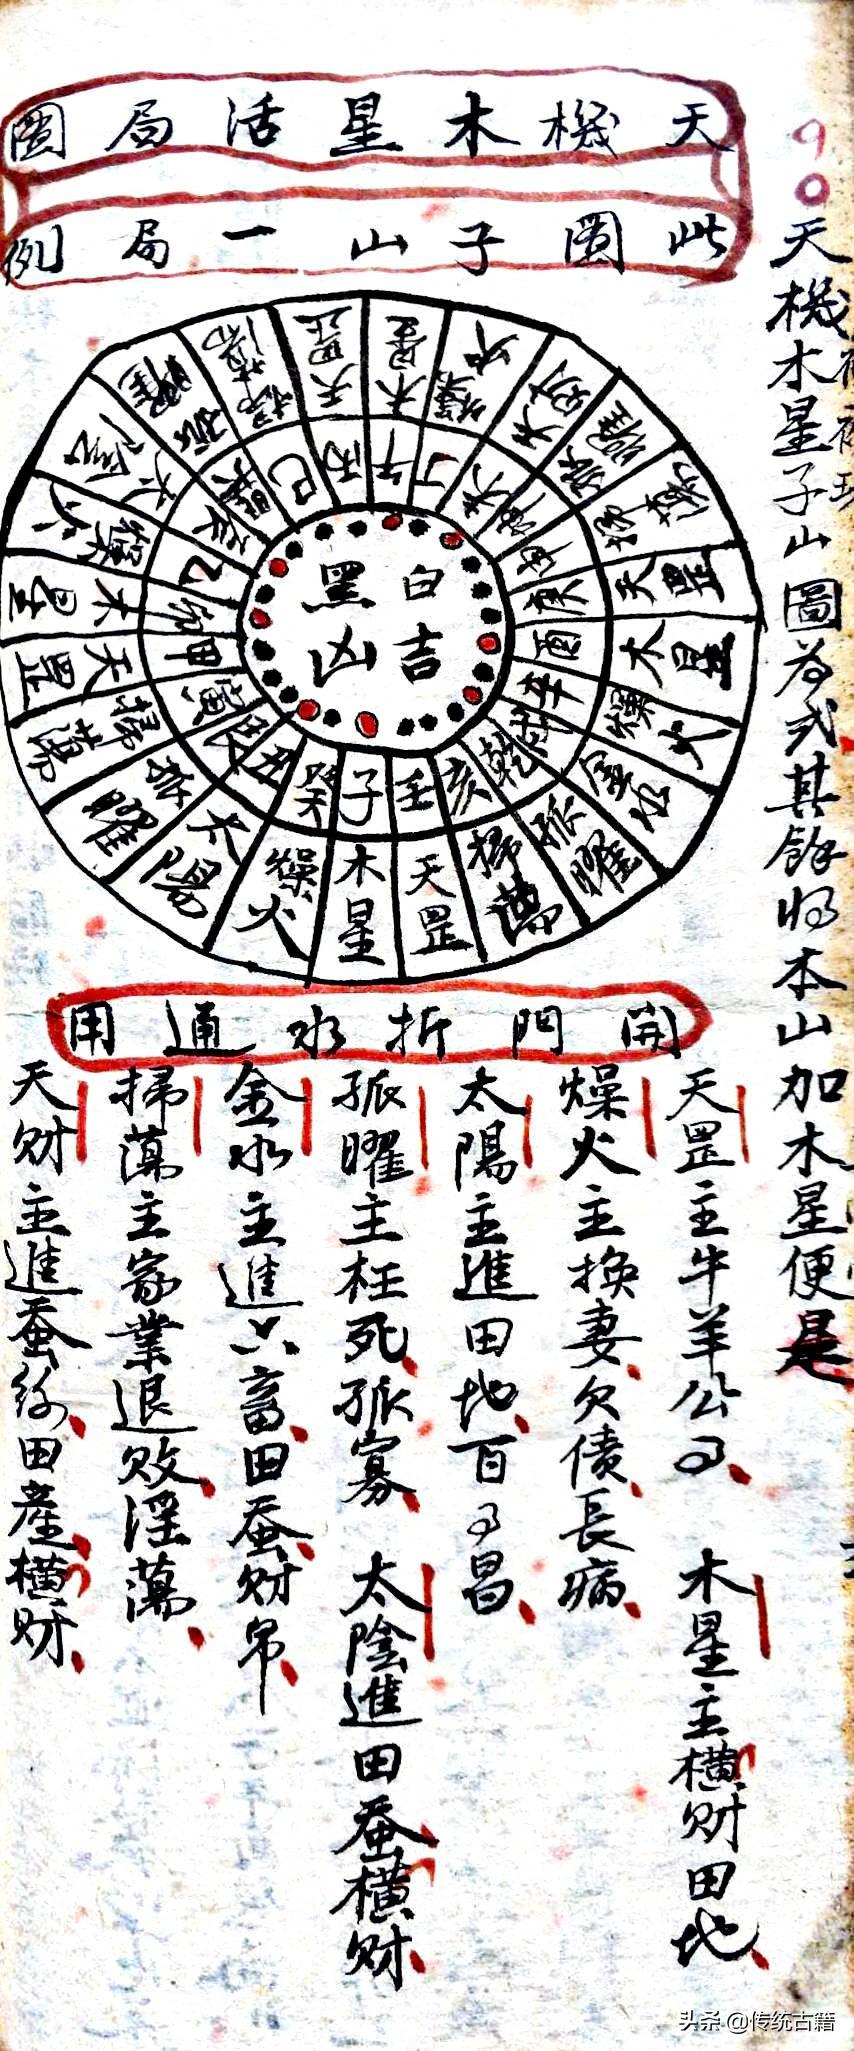 90
天機木星子山圖為式其餘將本山加木星便是
天機木星活局圖
此圖子山一局例
木星 燥火 太陽 孤曜 掃蕩 天罡 木星 燥火 太陰 孤曜 掃蕩 天罡 木星 燥火 天財 孤曜 掃蕩 天罡 木星 燥火 金水 孤曜 掃蕩 天罡
子 癸 丑 艮 寅 甲 卯 乙 辰 巽 巳 丙 午 丁 未 坤 申 庚 酉 辛 戌 乾 亥 壬
白吉
黑凶
開門折水通用
天罡主牛羊公事 木星主橫財田地
燥火主換妻欠債長病
太陽主進田地百事昌
孤曜主枉死孤寡 太陰進田蚕橫財
金水主進六畜田蚕財帛
掃蕩主家業退敗淫蕩
天財主進蚕絲田產橫財
头条 @传统古籍